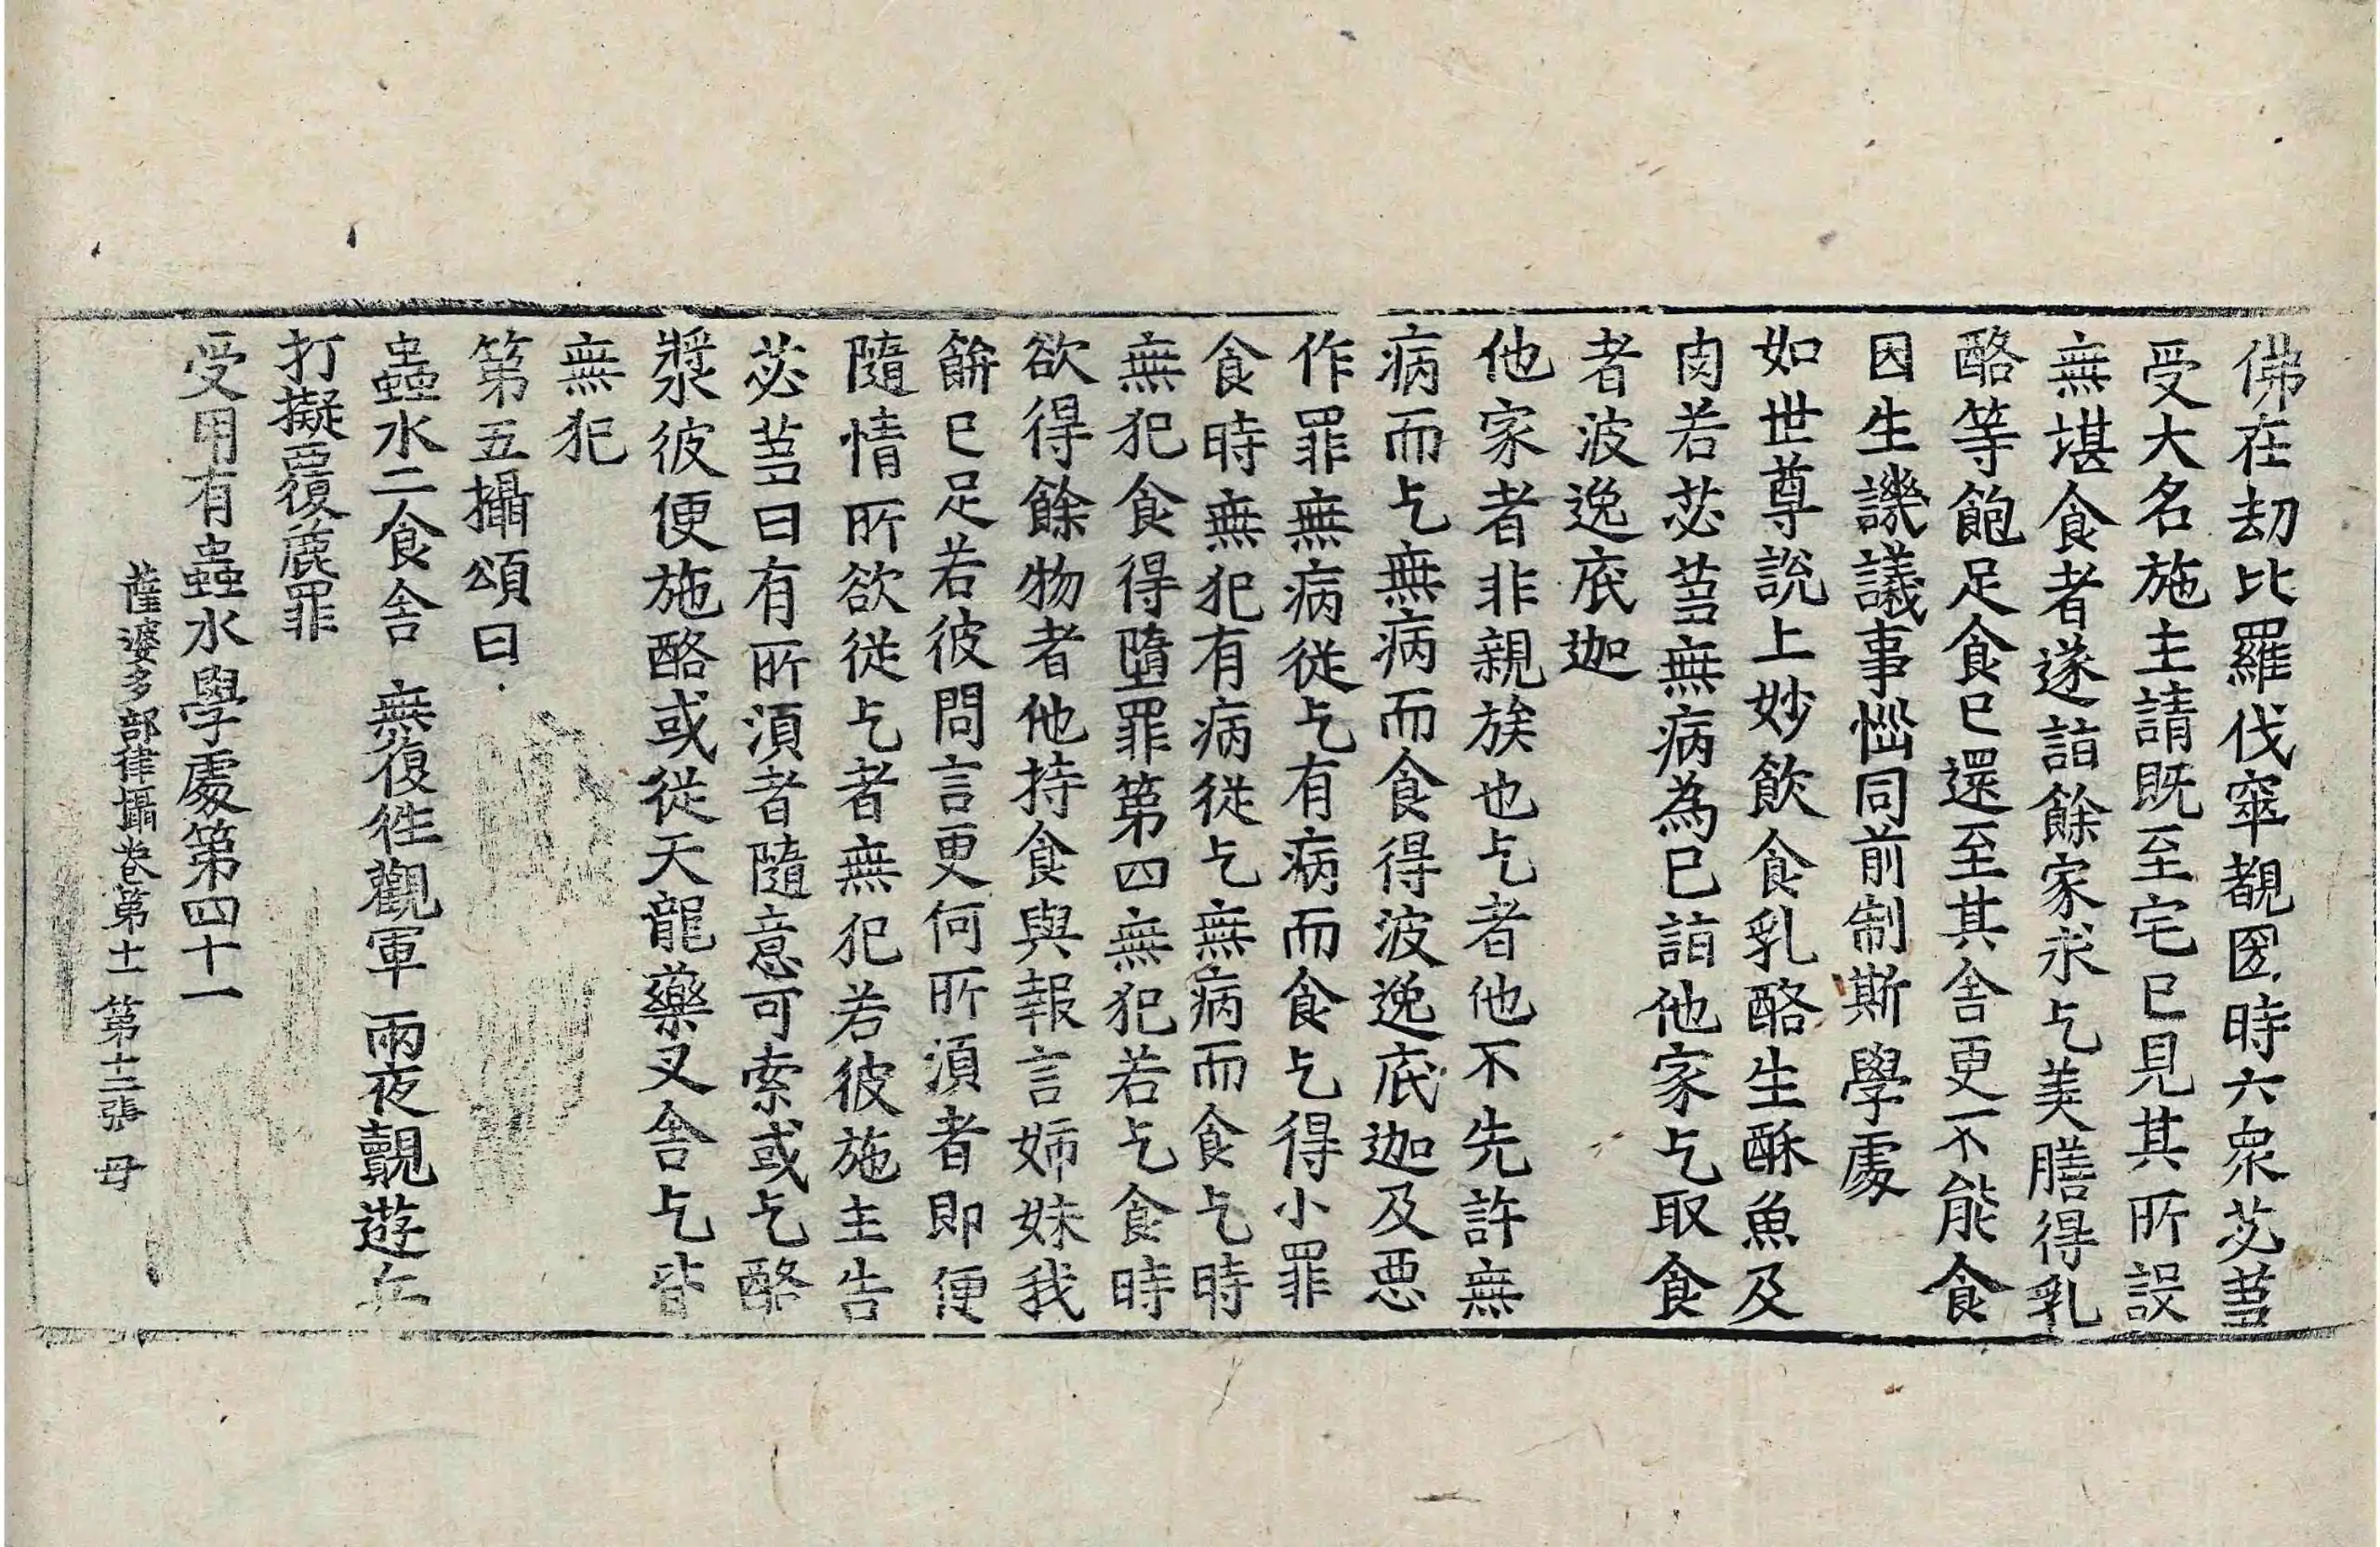 佛在劫比羅伐窣覩國時六衆苾芻
受大名施主請既至宅已見其所設
無堪食者遂詣餘家求乞美膳得乳
酪等飽足食已還至其舍更不能食
因生譏議事惱同前制斯學處
如世尊說上妙飲食乳酪生酥魚及
肉若苾芻無病為已詣他家乞取食
者波逸底迦
他家者非親族也乞者他不先許無
病而乞無病而食得波逸底迦及惡
作罪無病從乞有病而食乞得小罪
食時無犯有病從乞無病而食乞時
無犯食得墮罪第四無犯若乞食時
欲得餘物者他持食與報言姉妹我
餅已足若彼問言更何所須者即便
隨情所欲從乞者無犯若彼施主告
苾芻曰有所須者隨意可索或乞酪
漿彼便施酪或從天龍藥叉舍乞皆
無犯
第五攝頌曰
蟲水二食舍 無復往觀軍 兩夜覩遊兵
打擬覆麁罪
受用有蟲水學處第四十一
薩婆多部律攝卷第十一 第十二張 毋